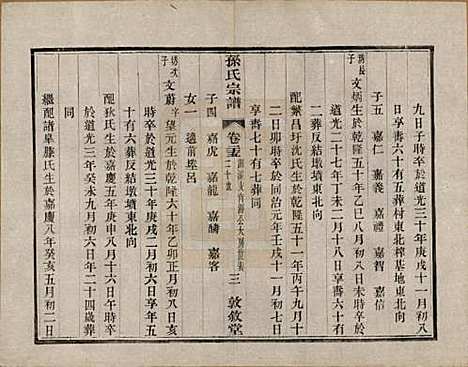 九日子時卒於道光三十年庚戌十一月初八
日享壽六十有五葬村東北榨基地東北向
子五 嘉仁 嘉義 嘉禮 嘉智 嘉信
長子 文炳生於乾隆五十年乙巳八月初六日未時卒於
道光二十七年丁未二月十八日享壽六十有
二葬反結墩東北向
配繁昌圩沈氏生於乾隆五十一年丙午九月十
二日卯時卒於同治元年壬戌十一月初七日
享壽七十有七葬同
孫氏宗譜
卷三
三 敦敘堂
子四 嘉虎 嘉龍 嘉麟 嘉客
女一 適前埂呂
次子 文蔚字望元生於乾隆六十年乙卯正月初八日亥
時卒於道光三十年庚戌二月初六日享年五
十有六葬反結墩墳東北向
配狄氏生於嘉慶五年庚申八月十六日午時卒
於道光三年癸未九月初六日年二十四歲葬
同
繼配諸阜滕氏生於嘉慶八年癸亥五月初二日